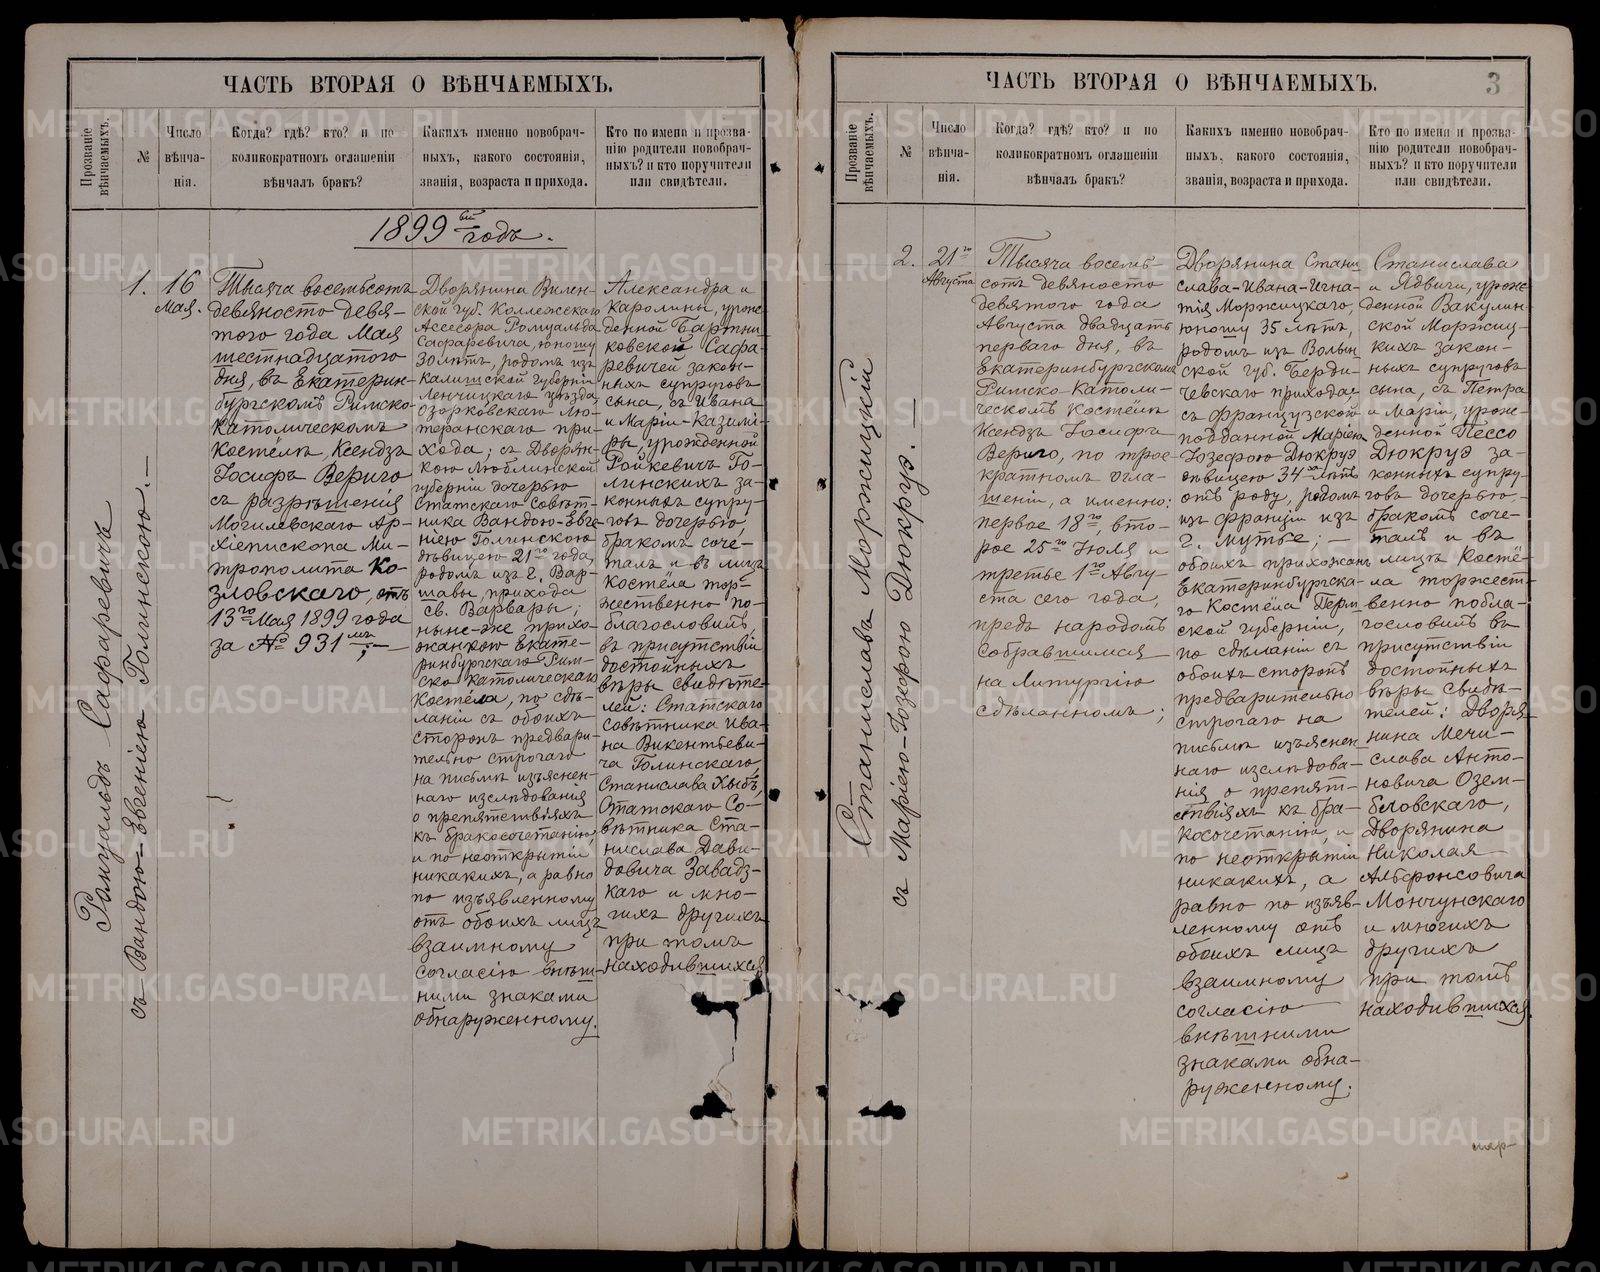 ЧАСТЬ ВТОРАЯ О ВѢНЧАЕМЫХЪ.
Прозваніе вѣнчаемыхъ.
№
Число вѣнча-
нія.
Когда? гдѣ? кто? и по
коликократномъ оглашеніи
вѣнчалъ бракъ?
Какихъ именно новобрач-
ныхъ, какого состоянія,
званія, возраста и прихода.
Кто по имени и прозва-
нію родители новобрач-
ныхъ? и кто поручители
или свидѣтели.
1899 ый годъ.
Ромуальдъ Сафаревичъ
съ Вандою-Евгеніею Голинскою.—
1.
16
Мая.
Тысяча восемьсотъ
девяносто девя-
того года Мая
шестнадцатого
дня, въ Екатерин-
бургскомъ Римско-
Католическомъ
Костёлѣ, Ксендзъ
Іосифъ Вериго
съ разрѣшенія
Могилевскаго Ар-
хіепископа Ми-
трополита Ко-
зловскаго, отъ
13го Мая 1899 года
за № 931 мъ;—
Дворянина Вилен-
ской губ. Коллежскаго
Ассесора Ромуальда
Сафаревича, юношу
30 лѣтъ, родомъ изъ
Калишской губерніи
Ленчицкаго уѣзда
Озорковскаго Лю-
теранскаго при-
хода; съ Дворян-
кою Люблинской
губерніи дочерью
Статскаго Совѣт-
ника Вандою-Евге-
ніею Голинскою
дѣвицею 21го года,
родомъ изъ г. Вар-
шавы, прихода
св. Варвары;
нынѣ-же прихо-
жанкою Екате-
ринбургскаго Рим-
ско католическаго
Костёла, по сдѣ-
ланіи съ обоихъ
сторонъ предвари-
тельно строгаго
на письмѣ изъяснен-
наго изслѣдованія
о препятствіяхъ
къ бракосочетанію,
и по неоткрытіи
никакихъ, а равно
по изъявленному
отъ обоихъ лицъ
взаимному
согласію внѣш-
ними знаками
обнаруженному.
Александра и
Каролины, урож-
денной Бартни-
ковской Сафа-
ревичей закон-
ныхъ супруговъ
сына, съ Ивана
и Маріи-Казимі-
ры урожденной
Ройкевичъ Го-
линскихъ за-
конныхъ супру-
говъ дочерью,
бракомъ соче-
талъ и въ лицѣ
Костёла тор-
жественно по-
благословилъ
въ присутствіи
достойныхъ
вѣры свидѣте-
лей: Статскаго
совѣтника Ива-
на Викентьеви-
ча Голинскаго,
Станислава Хыбъ,
Статскаго Со-
вѣтника Ста-
нислава Дави-
довича Завадз-
каго и мно-
гихъ другихъ
при томъ
находившихся
ЧАСТЬ ВТОРАЯ О ВѢНЧАЕМЫХЪ.
3
Прозваніе вѣнчаемыхъ.
№
Число вѣнча-
нія.
Когда? гдѣ? кто? и по
коликократномъ оглашеніи
вѣнчалъ бракъ?
Какихъ именно новобрач-
ныхъ, какого состоянія,
званія, возраста и прихода.
Кто по имени и прозва-
нію родители новобрач-
ныхъ? и кто поручители
или свидѣтели.
Станиславъ Моржицкій
съ Маріею-Іозефою Дюкруэ.—
2.
21го
Августа
Тысяча восемь-
сотъ девяносто
девятого года
Августа двадцать
перваго дня, въ
Екатеринбургскомъ
Римско-Католи-
ческомъ Костёлѣ
Ксендзъ Іосифъ
Вериго, по трое-
кратномъ огла-
шеніи, а именно:
первое 18го, вто-
рое 25го Іюля и
третье 1го Авгу-
ста сего года,
предъ народомъ
собравшимся
на Литургію
сдѣланномъ;
Дворянина Стани-
слава-Ивана-Игна-
тія Моржицкаго,
юношу 35 лѣтъ,
родомъ изъ Волын-
ской губ. Берди-
чевскаго прихода,
съ французскою
подданной Маріею
Іозефою Дюкруэ
дѣвицею 34хъ лѣтъ
отъ роду, родомъ
изъ Франціи изъ
г. Мутье; —
обоихъ прихожанъ
Екатеринбургска-
го Костёла Перм-
ской губерніи,
по сдѣланіи съ
обоихъ сторонъ
предварительно
строгаго на
письмѣ изъяснен-
наго изслѣдова-
нія о препят-
ствіяхъ къ бра-
косочетанію, и
по неоткрытіи
никакихъ, а
равно по изъяв-
ленному отъ
обоихъ лицъ
взаимному
согласію
внѣшними
знаками обна-
руженному.
Станислава
и Ядвиги, урож-
денной Вакулин-
ской Моржиц-
кихъ закон-
ныхъ супруговъ
сына, съ Петра
и Маріи, урож-
денной Пессо
Дюкруэ за-
конныхъ супру-
говъ дочерью,
бракомъ соче-
талъ и въ
лицѣ Костё-
ла торжест-
венно побла-
гословилъ въ
присутствіи
достойныхъ
вѣры свидѣ-
телей: Дворя-
нина Мечи-
слава Анто-
новича Озем-
бловскаго,
Дворянина
Николая
Альфонсовича
Мончунскаго
и многихъ
другихъ
при томъ
находившихся.
METRIKI.GASO-URAL.RU